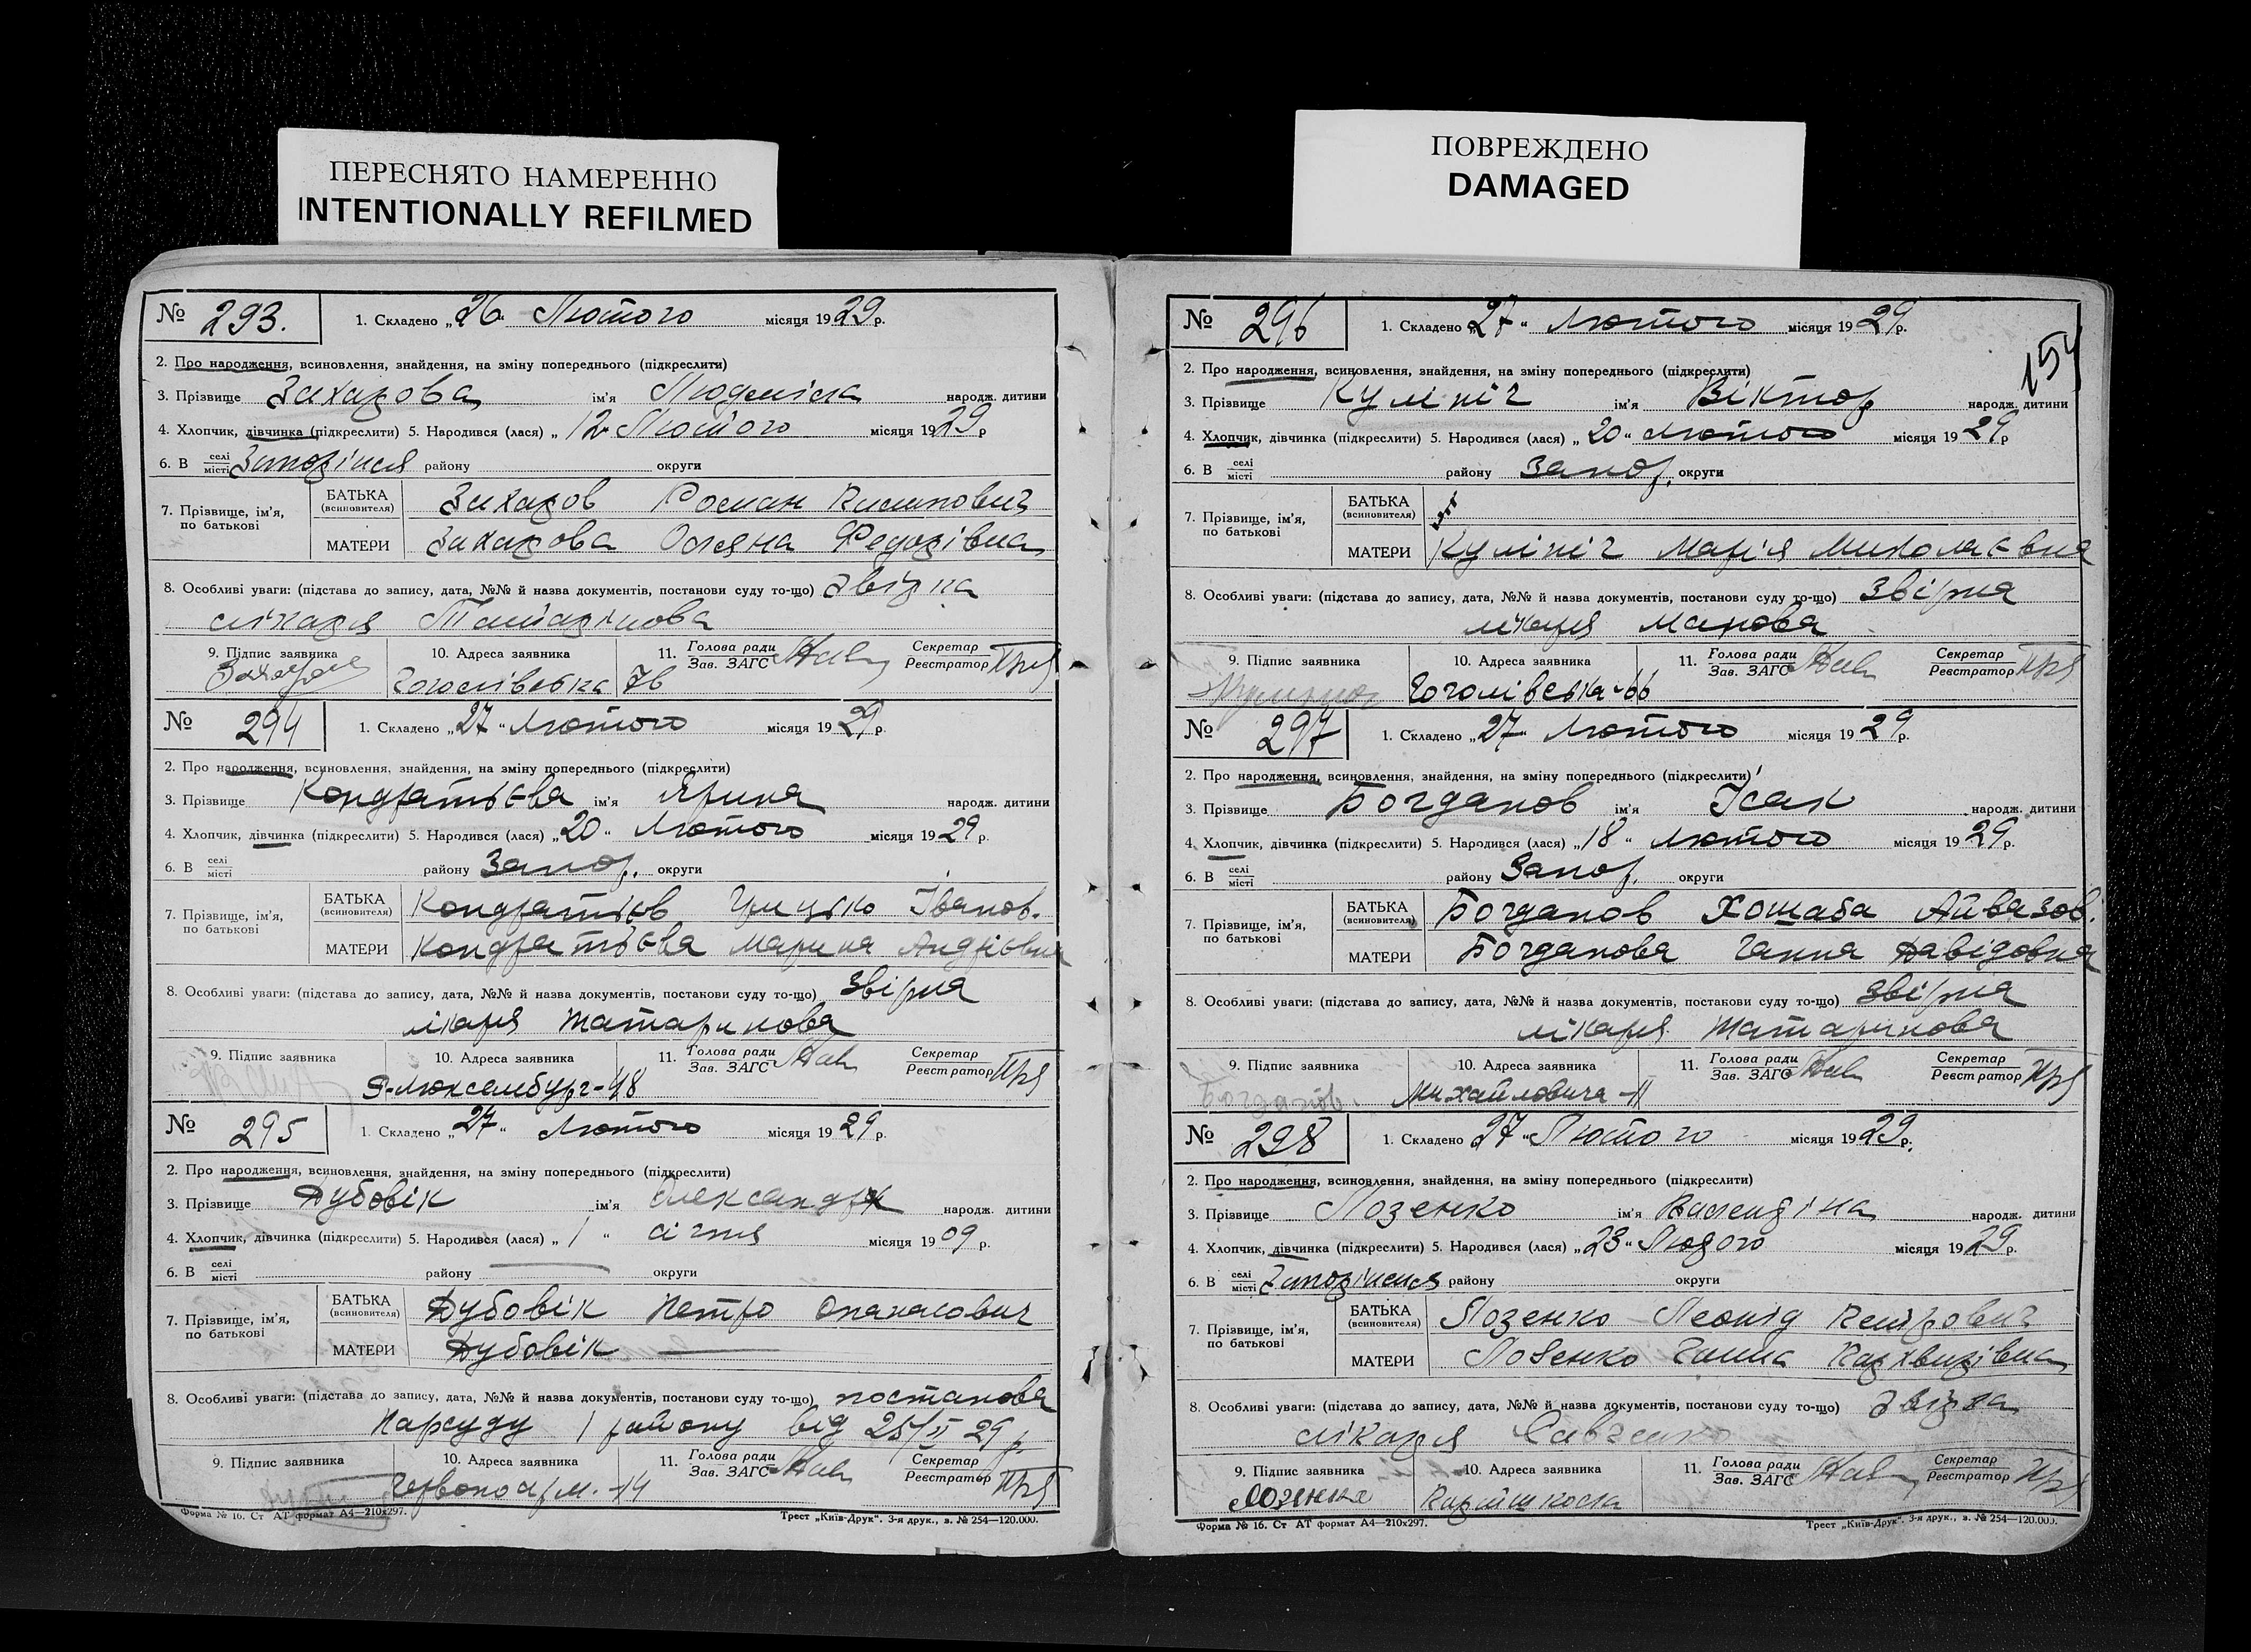 ПЕРЕСНЯТО НАМЕРЕННО
INTENTIONALLY REFILMED
№ 293. 1. Складено „26“ Лютого місяця 1929 р.
2. Про народження, всиновлення, знайдення, на зміну попереднього (підкреслити)
3. Прізвище Захарова ім'я Людміла народж. дитини
4. Хлопчик, дівчинка (підкреслити) 5. Народився (лася) „12 Лютого місяця 1929 р
6. В селі місті Запоріжжя району округи
7. Прізвище, ім'я, по батькові
БАТЬКА (всиновителя) Захаров Роман
МАТЕРИ Захарова Федорівна
8. Особливі уваги: (підстава до запису, дата, №№ й назва документів, постанови суду то-що) Звірка
лікаря Татарінова
9. Підпис заявника 10. Адреса заявника 11. Голова ради Зав. ЗАГС Секретар Реєстратор
Гоголівська 76
№ 294 1. Складено „27“ Лютого місяця 1929 р.
2. Про народження, всиновлення, знайдення, на зміну попереднього (підкреслити)
3. Прізвище Кондратьєва ім'я Ярина народж. дитини
4. Хлопчик, дівчинка (підкреслити) 5. Народився (лася) „20“ Лютого місяця 1929 р.
6. В селі місті району Запор. округи
7. Прізвище, ім'я, по батькові
БАТЬКА (всиновителя) Кондратьєв Грицько Іванов.
МАТЕРИ Кондратьєва Марина Андрієвна
8. Особливі уваги: (підстава до запису, дата, №№ й назва документів, постанови суду то-що) Звірка
лікаря Татаринова
9. Підпис заявника 10. Адреса заявника 11. Голова ради Зав. ЗАГС Секретар Реєстратор
Р-Люксембург-48
№ 295 1. Складено „27“ Лютого місяця 1929 р.
2. Про народження, всиновлення, знайдення, на зміну попереднього (підкреслити)
3. Прізвище Дубовік ім'я Олександр народж. дитини
4. Хлопчик, дівчинка (підкреслити) 5. Народився (лася) „1“ січня місяця 1909 р.
6. В селі місті району округи
7. Прізвище, ім'я, по батькові
БАТЬКА (всиновителя) Дубовік Петро Опанасович
МАТЕРИ Дубовік
8. Особливі уваги: (підстава до запису, дата, №№ й назва документів, постанови суду то-що) постанова
Нарсуду 1 району від 25/II 29 р.
9. Підпис заявника 10. Адреса заявника 11. Голова ради Зав. ЗАГС Секретар Реєстратор
Червоноарм.-14
Форма № 16. Ст АТ формат А4—210х297. Трест „Київ-Друк“. 3-я друк., з. № 254—120.000.
ПОВРЕЖДЕНО
DAMAGED
154
№ 296 1. Складено „27“ Лютого місяця 1929 р.
2. Про народження, всиновлення, знайдення, на зміну попереднього (підкреслити)
3. Прізвище Кулініч ім'я Віктор народж. дитини
4. Хлопчик, дівчинка (підкреслити) 5. Народився (лася) „20“ Лютого місяця 1929 р
6. В селі місті району Запор. округи
7. Прізвище, ім'я, по батькові
БАТЬКА (всиновителя)
МАТЕРИ Кулініч Марія Миколаєвна
8. Особливі уваги: (підстава до запису, дата, №№ й назва документів, постанови суду то-що) Звірка
лікаря
9. Підпис заявника 10. Адреса заявника 11. Голова ради Зав. ЗАГС Секретар Реєстратор
Гоголівська-66
№ 297 1. Складено „27“ Лютого місяця 1929 р.
2. Про народження, всиновлення, знайдення, на зміну попереднього (підкреслити)
3. Прізвище Богданов ім'я Ісак народж. дитини
4. Хлопчик, дівчинка (підкреслити) 5. Народився (лася) „18“ Лютого місяця 1929 р.
6. В селі місті району Запор. округи
7. Прізвище, ім'я, по батькові
БАТЬКА (всиновителя) Богданов Хошаба Айвазов.
МАТЕРИ Богданова Ганна Давідовна
8. Особливі уваги: (підстава до запису, дата, №№ й назва документів, постанови суду то-що) Звірка
лікаря Татарінова
9. Підпис заявника 10. Адреса заявника 11. Голова ради Зав. ЗАГС Секретар Реєстратор
Богданов. Михайловича-11
№ 298 1. Складено „27“ Лютого місяця 1929 р.
2. Про народження, всиновлення, знайдення, на зміну попереднього (підкреслити)
3. Прізвище Лозенко ім'я народж. дитини
4. Хлопчик, дівчинка (підкреслити) 5. Народився (лася) „23“ Лютого місяця 1929 р.
6. В селі місті Запоріжжя району округи
7. Прізвище, ім'я, по батькові
БАТЬКА (всиновителя) Лозенко Леонід
МАТЕРИ Лозенко Ганна
8. Особливі уваги: (підстава до запису, дата, №№ й назва документів, постанови суду то-що) Звірка
лікаря Савченко
9. Підпис заявника 10. Адреса заявника 11. Голова ради Зав. ЗАГС Секретар Реєстратор
Форма № 16. Ст АТ формат А4—210х297. Трест „Київ-Друк“. 3-я друк., з. № 254—120.000.